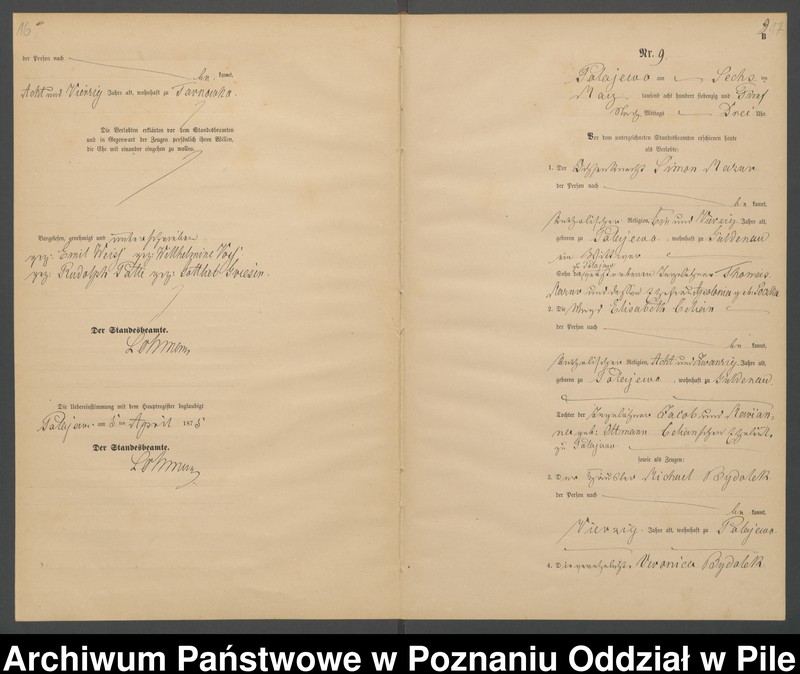 16
der Person nach
be kannt,
Acht und Vierzig Jahre alt, wohnhaft zu Tarnowko.
Die Verlobten erklärten vor dem Standesbeamten
und in Gegenwart der Zeugen persönlich ihren Willen,
die Ehe mit einander eingehen zu wollen.
Vorgelesen, genehmigt und unterschrieben
gez: Emil Weiß gez: Wilhelmine
gez: Rudolph gez: Gottlieb
Der Standesbeamte.
Lohmann
Die Uebereinstimmung mit dem Hauptregister beglaubigt
Polajewo am 5ten April 1875
Der Standesbeamte.
Lohmann
17
B
Nr. 9.
Polajewo am Sechs ten
März tausend acht hundert siebenzig und Fünf
Nach Mittags Drei Uhr.
Vor dem unterzeichneten Standesbeamten erschienen heute
als Verlobte:
1. Der Simon
der Person nach
be kannt,
katholischer Religion, und Vierzig Jahre alt,
geboren zu Polajewo, wohnhaft zu Güldenau
ein Wittwer
zu Polajewo
Sohn des verstorbenen Tagelöhner Thomas
und dessen Ehefrau Apolonia geb:
2. Die Magd Elisabeth
der Person nach
be kannt,
katholischer Religion, Acht und Zwanzig Jahre alt,
geboren zu Polajewo, wohnhaft zu Güldenau
Tochter der Tagelöhner Jacob und Marian-
na geb: Ottmann Eheleute
zu Polajewo
sowie als Zeugen:
3. Der Häusler Michael Bydolek
der Person nach
be kannt,
Vierzig Jahre alt, wohnhaft zu Polajewo.
4. Die verehelichte Veronica Bydolek
Archiwum Państwowe w Poznaniu Oddział w Pile